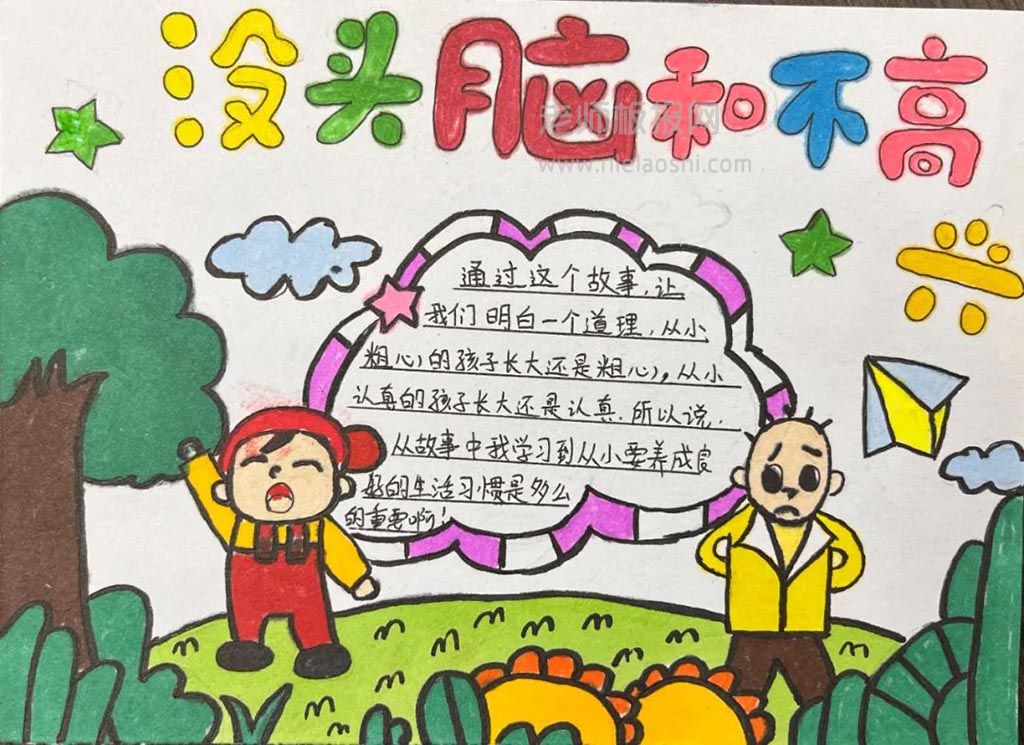 没头脑和不高
老师板报网
通过这个故事,让
我们明白一个道理,从小
粗心的孩子长大还是粗心,从小
认真的孩子长大还是认真.所以说,
从故事中我学习到从小要养成良
好的生活习惯是多么
的重要啊!